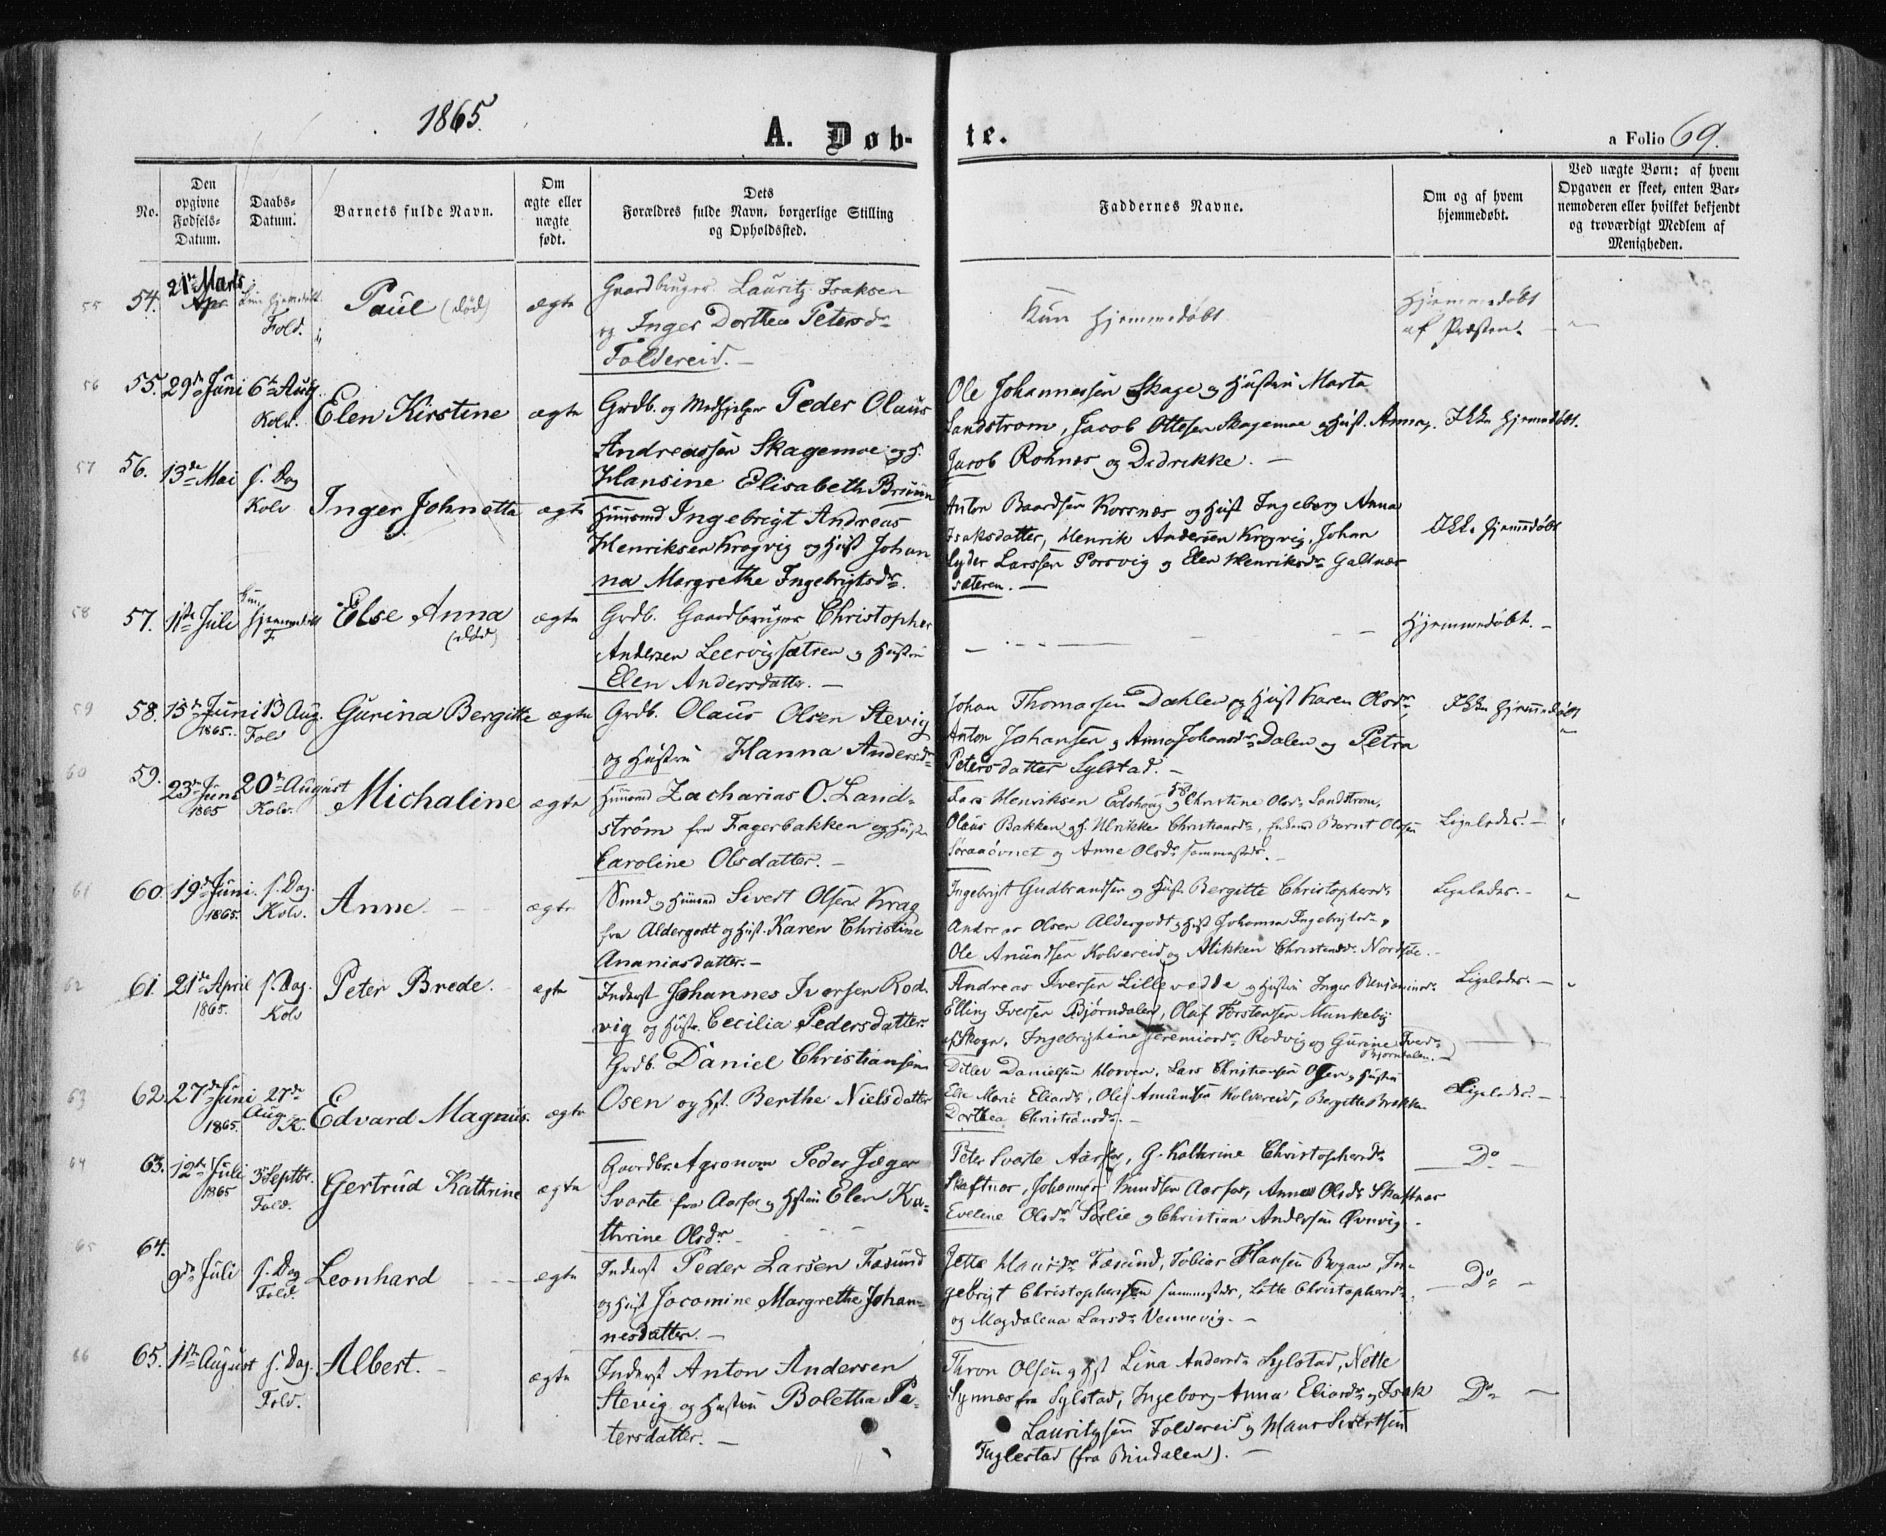 1865.
A. Døb-
te.
a Folio 69.
No.
Den
opgivne
Fødsels-
Datum.
Daabs-
Datum.
Barnets fulde Navn.
Om
ægte eller
uægte
født.
Dets
Forældres fulde Navn, borgerlige Stilling
og Opholdssted.
Faddernes Navne.
Om og af hvem
hjemmedøbt.
Ved uægte Børn: af hvem
Opgaven er skeet, enten Bar-
nemoderen eller hvilket bekjendt
og troværdigt Medlem af
Menigheden.
55 54. 21de Marts
Fold.
Paul (død)
ægte
Gaardbruger Lauritz Isaksen
og Inger Dorthea Petersdr
Foldereid. —
Kun hjemmedøbt
Hjemmedøbt
af Præsten.
56 55. 29de Juni 6te Aug.
Kolv.
Elen Kirstine
ægte
Grdb. og Medhjelper Peder Olaus
Andreassen Skagemoe og H.
Hansine Elisabeth Bruun
Ole Johannessen Skage og Hustru Marta
Sandstrom, Jacob Ottesen Skagemoe og Hust. Anna,
Jacob Rohnes og Didrikke. —
Ikke hjemmedøbt.
57 56. 13de Mai s. Dag
Kolv
Inger Johnetta
ægte
Huusmd Ingebrigt Andreas
Henriksen Krogvig og Hust Johan
na Margrethe Ingebrigtsdr.
Anton Baardsen Korsnes og Hust Ingeborg Anna
Isaksdatter, Henrik Andersen Krogvig, Johan
Lyder Larssen Porsvig og Elen Henriksdr Galtnes
sæteren. —
Ikke hjemmedøbt
58 57. 11te Juli
Kun
hjemmedøbt
F
Else Anna
(død)
ægte
Grdb. Gaardbruger Christopher
Andersen Leervigsætren og Hustru
Elen Andersdatter. —
Hjemmedøbt. —
59 58. 15de Juni 13 Aug.
1865. Fold
Gurina Bergitte
ægte
Grdb. Olaus Olsen Stevig
og Hustru Hanna Andersdr
Johan Thomassen Dahlen og Hust Karen Olsdr,
Anton Johansen og Anna Johansdr Dalen og Petra
Petersdatter Sylstad. —
Ikke hjemmedøbt
60 59. 23de Juni 20de August
1865 Kolv.
Michaline
ægte
Huusmd Zacharias O. Land-
strøm fra Fagerbakken og Hust.
Caroline Olsdatter. —
Lars Henriksen Edshaug og Christine Olsdr Sandstrøm,
Olaus Bakken og H. Ulrikke Christiansdr, Enkemd Barnt Olsen
og Anne Olsdr sammesteds. —
Ligeledes. —
61 60. 19de Juni s. Dag.
1865. Kolv.
Anne
ægte
Smed og Huusmd Sivert Olsen Krag
fra Aldergodt og Hust. Karen Christine
Ananiasdatter. —
Ingebrigt Gudbrandsen og Hust. Bergitte Christophersdr
Andreas Olsen Aldergodt og Hust Johanna Ingebrigtsdr,
Ole Amundsen Kolvereid og Alikken Christensdr Nordstue.
Ligeledes. —
62 61. 21de April s. Dag.
1865. Kolv
Peter Brede.
ægte
Inderst Johannes Iversen Rod-
vig og Hustr. Cecilia Pedersdatter.
Andreas Iversen Lillevedde og Hustru Inger Benjaminsdr
Elling Iversen Bjørndalen, Olaf Torstensen Munkeby
af Skogn, Ingebrightine Jeremiasdr Rodvig og Gurine Iversdr
Bjørndalen.
Ligeledes. —
63 62. 27de Juni 27de
1865. Aug. K.
Edvard Magnus.
ægte
Grdb. Daniel Christiansen
Osen og Hst. Berthe Nielsdatter
Ditlev Danielsen Horven, Lars Christiansen Osen og Hustru
Else Marie Eliasdr, Ole Amundsen Kolvereid, Bergitte Brække
Dorthea Christiansdr. —
Ligeledes. —
64 63. 12te Juli 3 Septbr.
1865 Fold.
Gertrud Kathrine
ægte
Gaardbr. Agronom Peder Jæger
Svarte fra Aarfor og Hstru Elen Ka-
thrine Olsdr
Peter Svarte Aarfor, G. Kathrine Christophersdr
Skaftnes, Johannes Knudsen Aarfor, Anna Olsdr Skaftnes
Eveline Olsdr Sørlie og Christian Andersen Øvnvig.
Do —
65 64. 9de Juli s. Dag
Fold.
Leonhard
ægte
Inderst Peder Larsen Fæsund
og Hust Jocomine Margrethe Johan-
nesdatter. —
Jette Fæsund, Tobias Hansen Bogan, In-
gebrigt Christophersen sammesteds, Lotte Christophersdr
og Magdalena Larsdr Vennevig. —
Do —
66 65. 11te August s. Dag.
Fold.
Albert.
ægte
Inderst Anton Andersen
Stevig og Hustru Boletha Pe-
tersdatter. —
Thron Olsen og Hst Lina Andersdr Sylstad, Nette
Synnes fra Sylstad, Ingeborg Anna Eliasdr og Isak
Lauritzsen Foldereid og Hans Sivertsen
Fuglestad (fra Bindalen). —
Do —